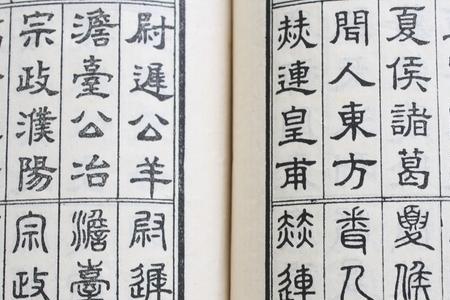 夏侯諸葛
聞人東方
赫連皇甫
尉遲公羊
澹臺公冶
宗政濮陽
夏侯
聞人
赫連
尉遲
澹臺
宗政